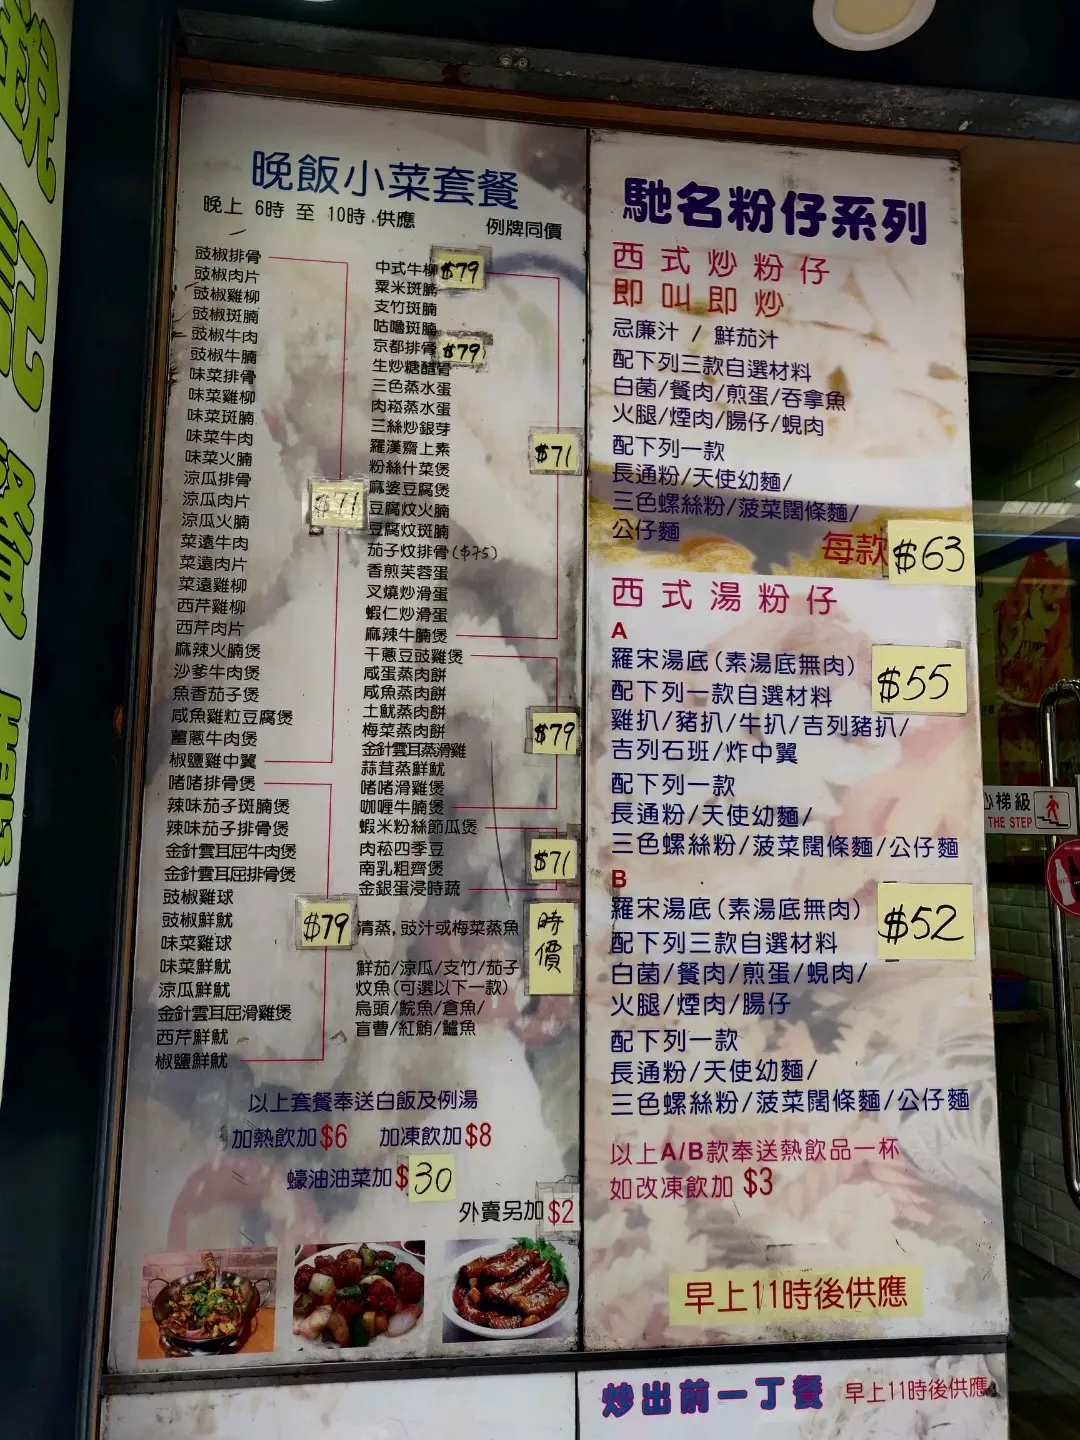 銳記餐
晚飯小菜套餐
晚上 6時 至 10時 供應
例牌同價
豉椒排骨
豉椒肉片
豉椒雞柳
豉椒斑腩
豉椒牛肉
豉椒牛腩
味菜排骨
味菜雞柳
味菜斑腩
味菜牛肉
味菜火腩
涼瓜排骨
涼瓜肉片
涼瓜火腩
菜遠牛肉
菜遠肉片
菜遠雞柳
西芹雞柳
西芹肉片
麻辣火腩煲
沙爹牛肉煲
魚香茄子煲
咸魚雞粒豆腐煲
薑蔥牛肉煲
椒鹽雞中翼
$71
啫啫排骨煲
辣味茄子斑腩煲
辣味茄子排骨煲
金針雲耳屈牛肉煲
金針雲耳屈排骨煲
豉椒雞球
豉椒鮮魷
味菜雞球
味菜鮮魷
涼瓜鮮魷
金針雲耳屈滑雞煲
西芹鮮魷
椒鹽鮮魷
$79
中式牛柳 $79
粟米斑腩
支竹斑腩
咕嚕斑腩
京都排骨 $79
生炒糖醋骨
三色蒸水蛋
肉崧蒸水蛋
三絲炒銀芽
羅漢齋上素
粉絲什菜煲
麻婆豆腐煲
豆腐炆火腩
豆腐炆斑腩
茄子炆排骨($75)
香煎芙蓉蛋
叉燒炒滑蛋
蝦仁炒滑蛋
麻辣牛腩煲
$71
干蔥豆豉雞煲
咸蛋蒸肉餅
咸魚蒸肉餅
土魷蒸肉餅
梅菜蒸肉餅
金針雲耳蒸滑雞
蒜茸蒸鮮魷
啫啫滑雞煲
咖喱牛腩煲
$79
蝦米粉絲節瓜煲
肉菘四季豆
南乳粗齊煲
金銀蛋浸時蔬
$71
清蒸,豉汁或梅菜蒸魚
時價
鮮茄/涼瓜/支竹/茄子
炆魚(可選以下一款)
烏頭/鯇魚/倉魚/
盲曹/紅鮪/鱸魚
以上套餐奉送白飯及例湯
加熱飲加$6 加凍飲加$8
蠔油油菜加$30
外賣另加$2
馳名粉仔系列
西式炒粉仔
即叫即炒
忌廉汁 / 鮮茄汁
配下列三款自選材料
白菌/餐肉/煎蛋/吞拿魚
火腿/煙肉/腸仔/蜆肉
配下列一款
長通粉/天使幼麵/
三色螺絲粉/菠菜闊條麵/
公仔麵
每款 $63
西式湯粉仔
A
羅宋湯底(素湯底無肉)
$55
配下列一款自選材料
雞扒/豬扒/牛扒/吉列豬扒/
吉列石班/炸中翼
配下列一款
長通粉/天使幼麵/
三色螺絲粉/菠菜闊條麵/公仔麵
B
羅宋湯底(素湯底無肉)
$52
配下列三款自選材料
白菌/餐肉/煎蛋/蜆肉/
火腿/煙肉/腸仔
配下列一款
長通粉/天使幼麵/
三色螺絲粉/菠菜闊條麵/公仔麵
以上A/B款奉送熱飲品一杯
如改凍飲加 $3
早上11時後供應
炒出前一丁餐 早上11時後供應
心梯級
THE STEP